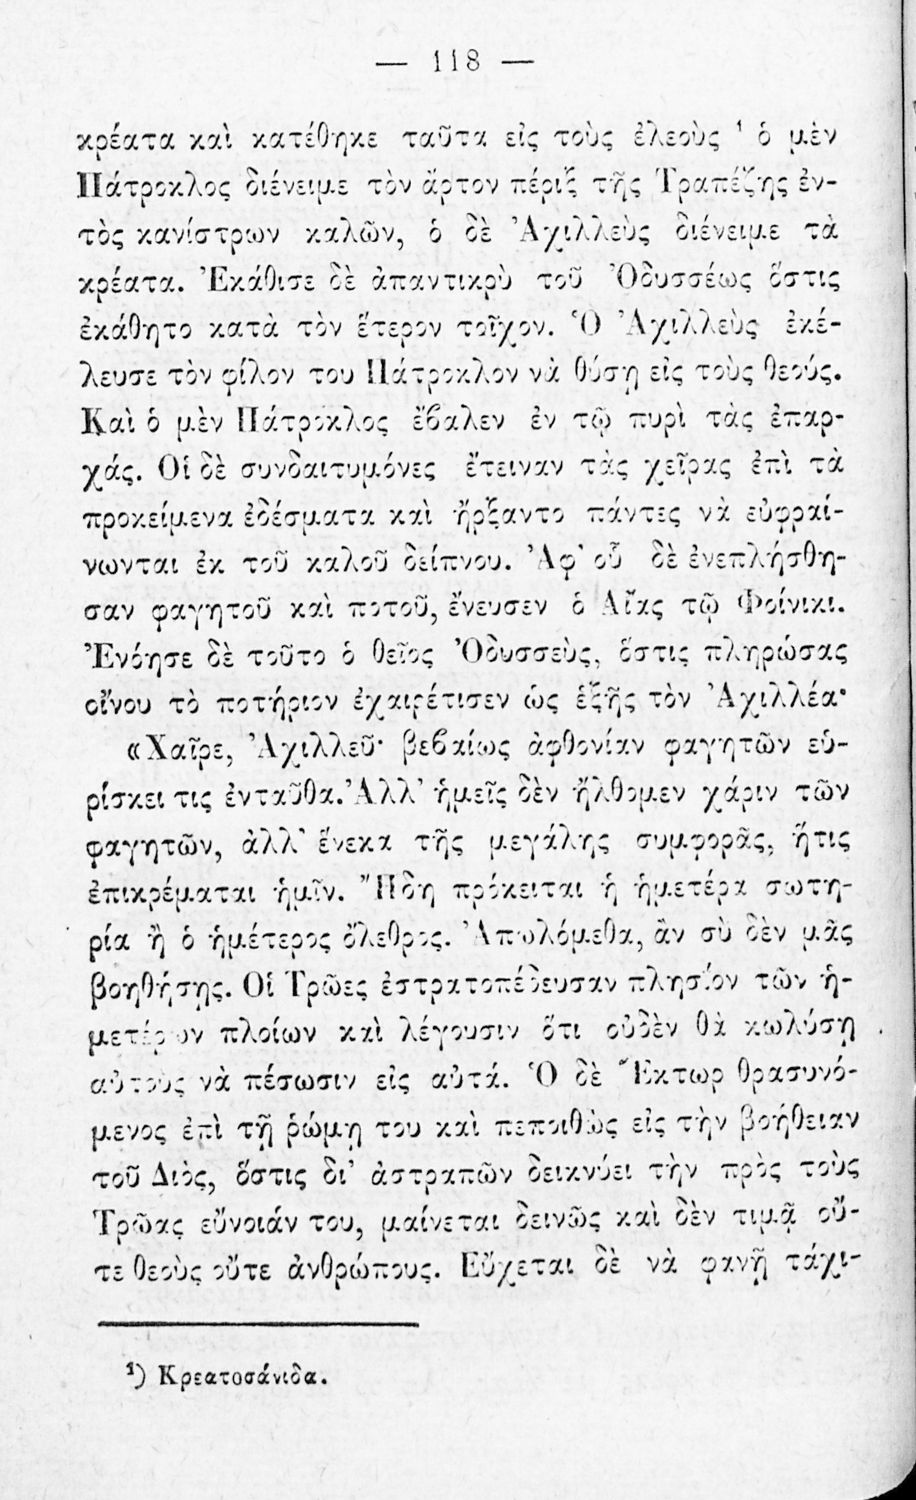 — 118 —
κρέατα καὶ κατέθηκε ταῦτα εἰς τοὺς ἐλεοὺς ¹ ὁ μὲν
Πάτροκλος διένειμε τὸν ἄρτον πέριξ τῆς Τραπέζης ἐν-
τὸς κανίστρων καλῶν, ὁ δὲ Ἀχιλλεὺς διένειμε τὰ
κρέατα. Ἐκάθισε δὲ ἀπαντικρὺ τοῦ Ὀδυσσέως ὅστις
ἐκάθητο κατὰ τὸν ἕτερον τοῖχον. Ὁ Ἀχιλλεὺς ἐκέ-
λευσε τὸν φίλον του Πάτροκλον νὰ θύσῃ εἰς τοὺς θεούς.
Καὶ ὁ μὲν Πάτροκλος ἔβαλεν ἐν τῷ πυρὶ τὰς ἐπαρ-
χάς. Οἱ δὲ συνδαιτυμόνες ἔτειναν τὰς χεῖρας ἐπὶ τὰ
προκείμενα ἐδέσματα καὶ ἤρξαντο πάντες νὰ εὐφραί-
νωνται ἐκ τοῦ καλοῦ δείπνου. Ἀφ' οὗ δὲ ἐνεπλήσθη-
σαν φαγητοῦ καὶ ποτοῦ, ἔνευσεν ὁ Αἴας τῷ Φοίνικι.
Ἐνόησε δὲ τοῦτο ὁ θεῖος Ὀδυσσεὺς, ὅστις πληρώσας
οἴνου τὸ ποτήριον ἐχαιρέτισεν ὡς ἑξῆς τὸν Ἀχιλλέα·
«Χαῖρε, Ἀχιλλεῦ· βεβαίως ἀφθονίαν φαγητῶν εὑ-
ρίσκει τις ἐνταῦθα. Ἀλλ' ἡμεῖς δὲν ἤλθομεν χάριν τῶν
φαγητῶν, ἀλλ' ἕνεκα τῆς μεγάλης συμφορᾶς, ἥτις
ἐπικρέμαται ἡμῖν. Ἤδη πρόκειται ἡ ἡμετέρα σωτη-
ρία ἢ ὁ ἡμέτερος ὄλεθρος. Ἀπωλόμεθα, ἂν σὺ δὲν μᾶς
βοηθήσῃς. Οἱ Τρῶες ἐστρατοπέδευσαν πλησίον τῶν ἡ-
μετέρων πλοίων καὶ λέγουσιν ὅτι οὐδὲν θὰ κωλύσῃ
αὐτοὺς νὰ πέσωσιν εἰς αὐτά. Ὁ δὲ Ἕκτωρ θρασυνό-
μενος ἐπὶ τῇ ῥώμῃ του καὶ πεποιθὼς εἰς τὴν βοήθειαν
τοῦ Διὸς, ὅστις δι' ἀστραπῶν δεικνύει τὴν πρὸς τοὺς
Τρῶας εὔνοιάν του, μαίνεται δεινῶς καὶ δὲν τιμᾷ οὔ-
τε θεοὺς οὔτε ἀνθρώπους. Εὔχεται δὲ νὰ φανῇ τάχι-
¹) Κρεατοσάνιδα.